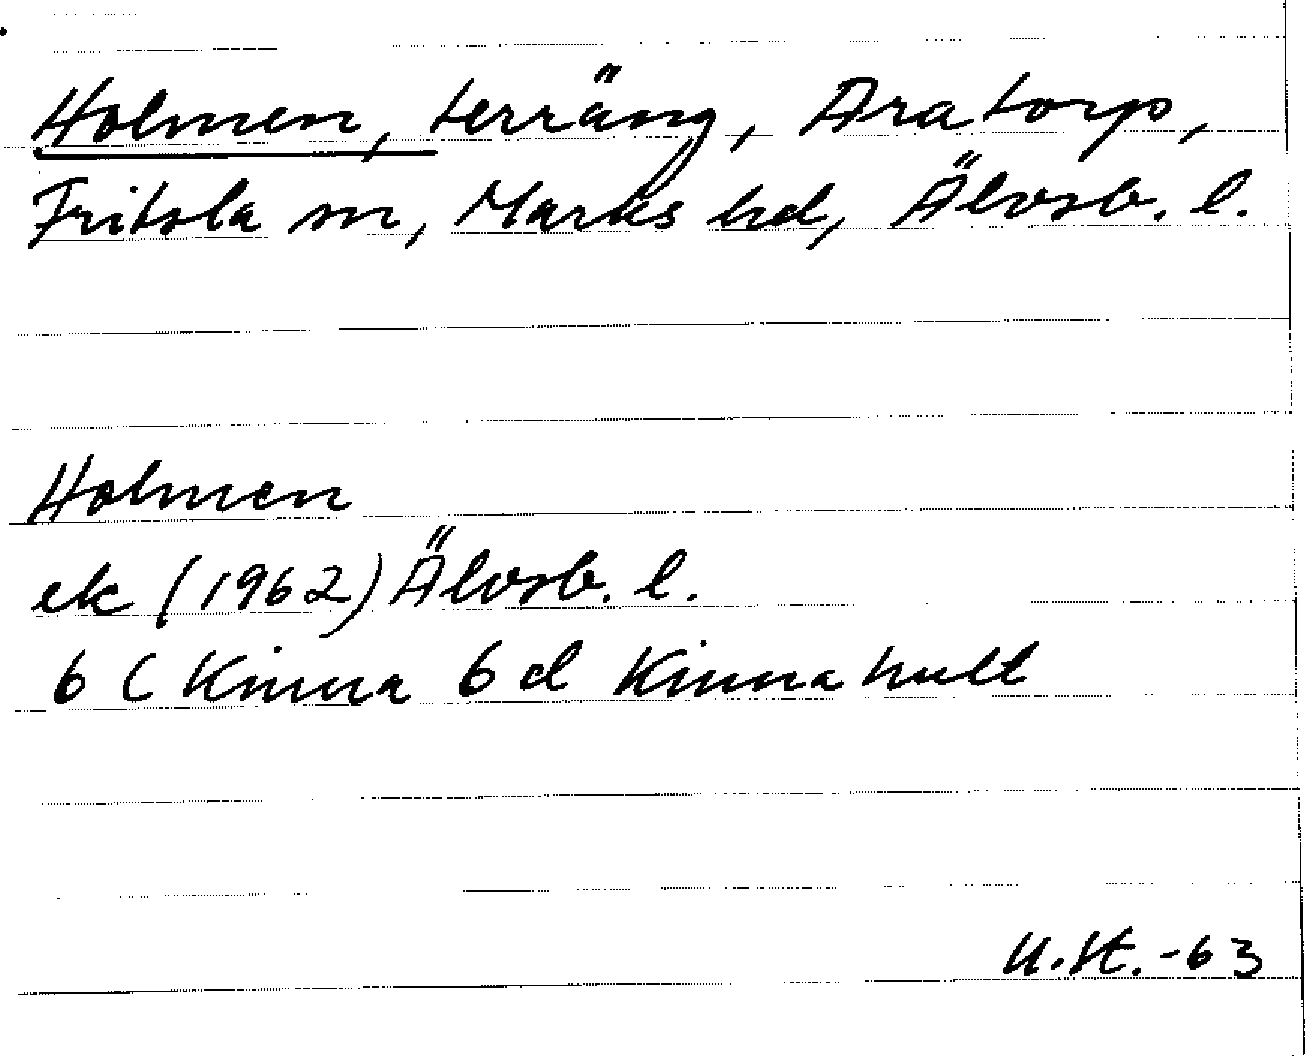 Holmen, terräng, Aratorp,
Fritsla sn, Marks hd, Älvsb. l.
Holmen
ek (1962) Älvsb. l.
6 C Kinna 6 d Kinnahult
U.St. -63